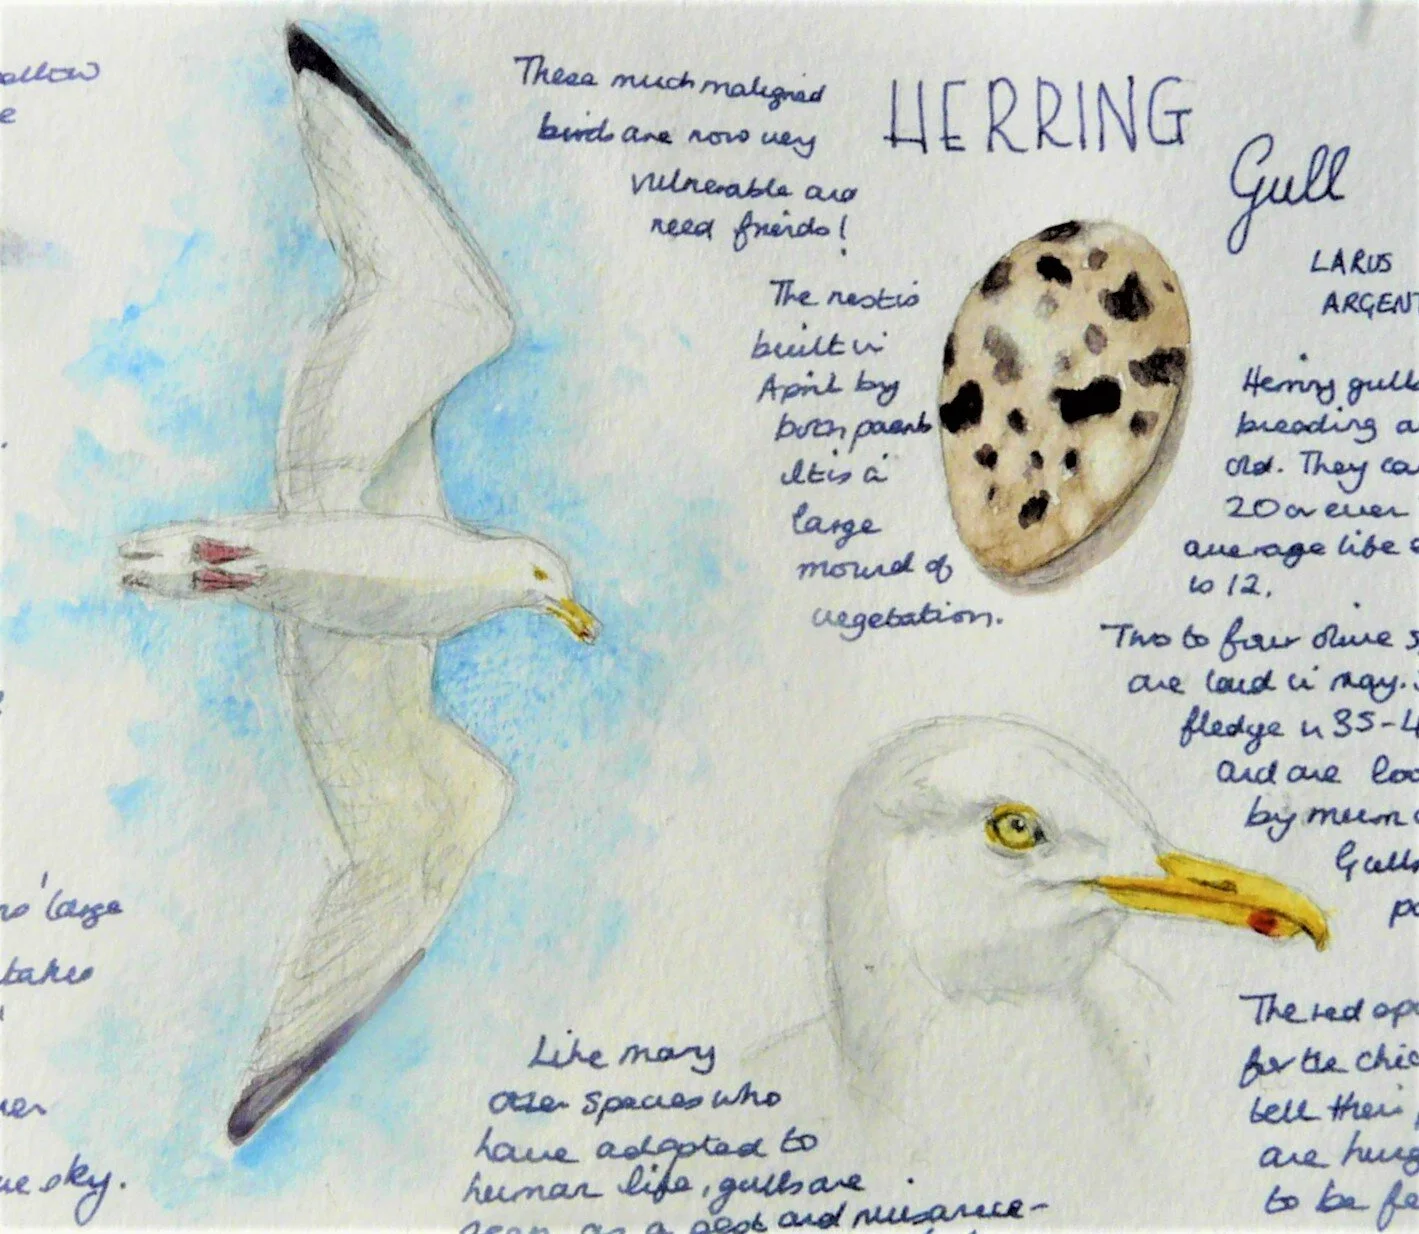 HERRING
Gull
LARUS
ARGENT
These much maligned
birds are now very
vulnerable and
need friends!
The nest is
built in
April by
both parents
It is a
large
mound of
vegetation.
Herring gulls
breeding a
old. They ca
20 or even
average life
is 12.
Two to four olive s
are laid in May.
fledge in 35-4
and are loo
by mum
Gulls
po
The red spo
for the chic
tell their p
are hung
to be fe
Like many
other species who
have adapted to
human life, gulls are
seen as a pest and nuisance-
allow
e
no 'large
take
ner
ue sky.